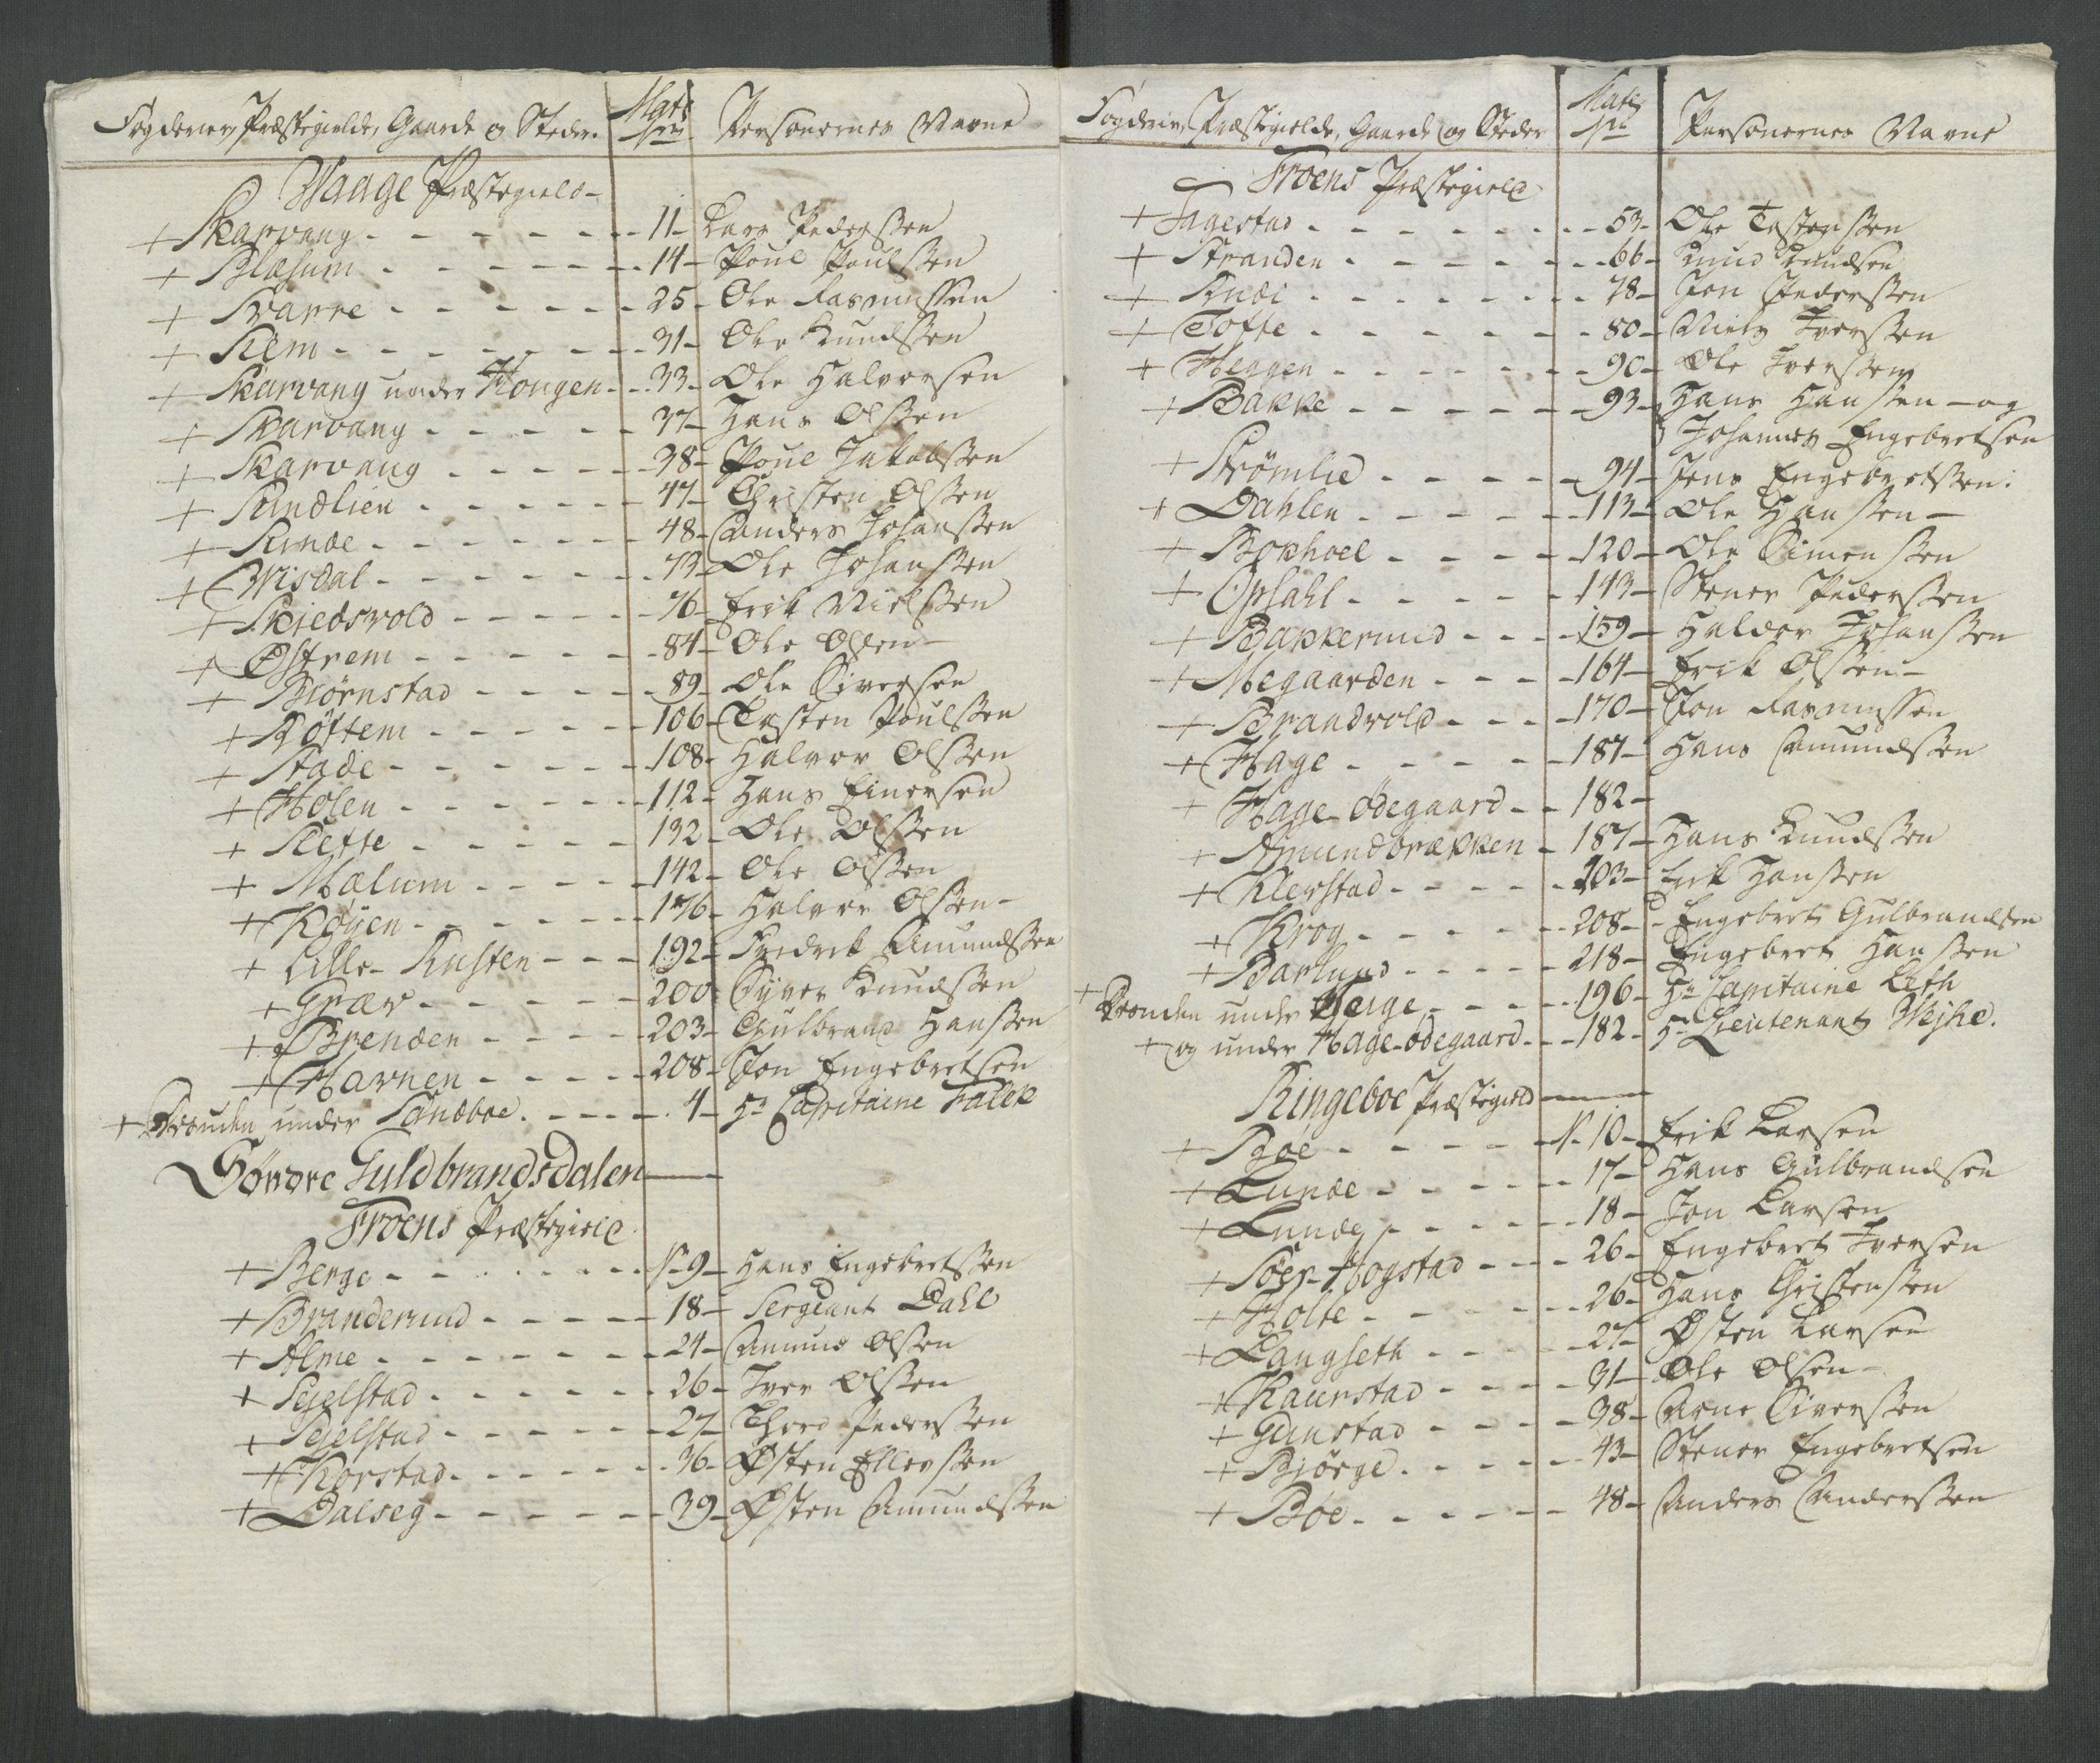 Fogderier, Præstegielde, Gaarde og Steder. Matr No Personernes Navne
Waage Præstegield
+ Skarvang - 11 - Lars Pedersen
+ Blæsum - 14 - Poul Poulsen
+ Svarre - 25 - Ole Rasmussen
+ Kem - 31 - Ole Knudsen
+ Skarvang under Hougen - 33 - Ole Halvorsen
+ Skarvang - 37 - Hans Olsen
+ Skarvang - 38 - Poul Jakobsen
+ Rindlien - 47 - Christen Olsen
+ Rinde - 48 - Anders Johansen
+ Wisdal - 73 - Ole Johansen
+ Skiedsvold - 76 - Erik Nielsen
+ Østrem - 84 - Ole Olsen
+ Biørnstad - 89 - Ole Siversen
+ Røttem - 106 - Tosten Poulsen
+ Stade - 108 - Halvor Olsen
+ Holen - 112 - Hans Einersen
+ Klette - 132 - Ole Olsen
+ Mælum - 142 - Ole Olsen
+ Køyen - 176 - Halvor Olsen
+ Lille Rusten - 192 - Fredrik Amundsen
+ Græv - 200 Syver Knudsen
+ Brenden - 203 - Gulbrand Hansen
+ Havnen - 208 - Jon Engebretsen
+ Grouden under Sandboe - 4 - Hr Capitaine Falck
Søndre Guldbrandsdalen
Froens Præstegield
+ Berge - No 9 - Hans Engebretsen
+ Branderud - 18 - Sergeant Dahl
+ Alme - 24 - Amund Olsen
+ Segelstad - 26 - Iver Olsen
+ Segelstad - 27 - Thord Pedersen
+ Korstad - 36 - Østen Ellevsen
+ Dalseg - 39 - Østen Amundsen
Fogderie, Præstegielde, Gaarde og Steder Matr No Personernes Navne
Froens Præstegield
+ Fagestad - 53 - Ole Tostensen
+ Stranden - 66 - Knud Knudsen
+ Rude - 78 - Jon Pedersen
+ Tofte - 80 - Niels Iversen
+ Heggen - 90 - Ole Iversen
+ Bakke - 93 - Hans Hansen - og
Johannes Engebretsen
+ Strømlie - 94 - Jens Engebretsen
+ Dahlen - 113 - Ole Hansen
+ Bokhoel - 120 - Ole Simensen
+ Opsahl - 143 - Stener Pedersen
+ Bakkerud - 159 - Haldor Johansen
+ Megaarden - 164 - Erik Olsen
+ Brandvold - 170 - Jon Rasmussen
+ Hage - 181 - Hans Amundsen
+ Hage Ødegaard - 182 -
+ Amundbrækken - 187 - Hans Knudsen
+ Klevstad - 203 - Erik Hansen
+ Krog - 208 - Engebret Gulbrandsen
+ Barlund - 218 - Engebret Hansen
+ Grouden under Berge - 196 - Hr Capitaine Leth
+ og under Hage-ødegaard - 182 - Hr Lieutenant Wejhe.
Ringeboe Præstegield
+ Boe - No 10 - Erik Larsen
+ Lunde - 17 - Hans Gulbrandsen
+ Lunde - 18 - Jon Larsen
+ Søer-Høgstad - 26 - Engebret Iversen
+ Holte - 26 - Hans Christensen
+ Langseth - 27 - Østen Larsen
+ Kaurstad - 31 - Ole Olsen
+ Gunstad - 38 - Arne Siversen
+ Biørge - 43 - Stener Engebretsen
+ Bøe - 48 - Anders Andersen